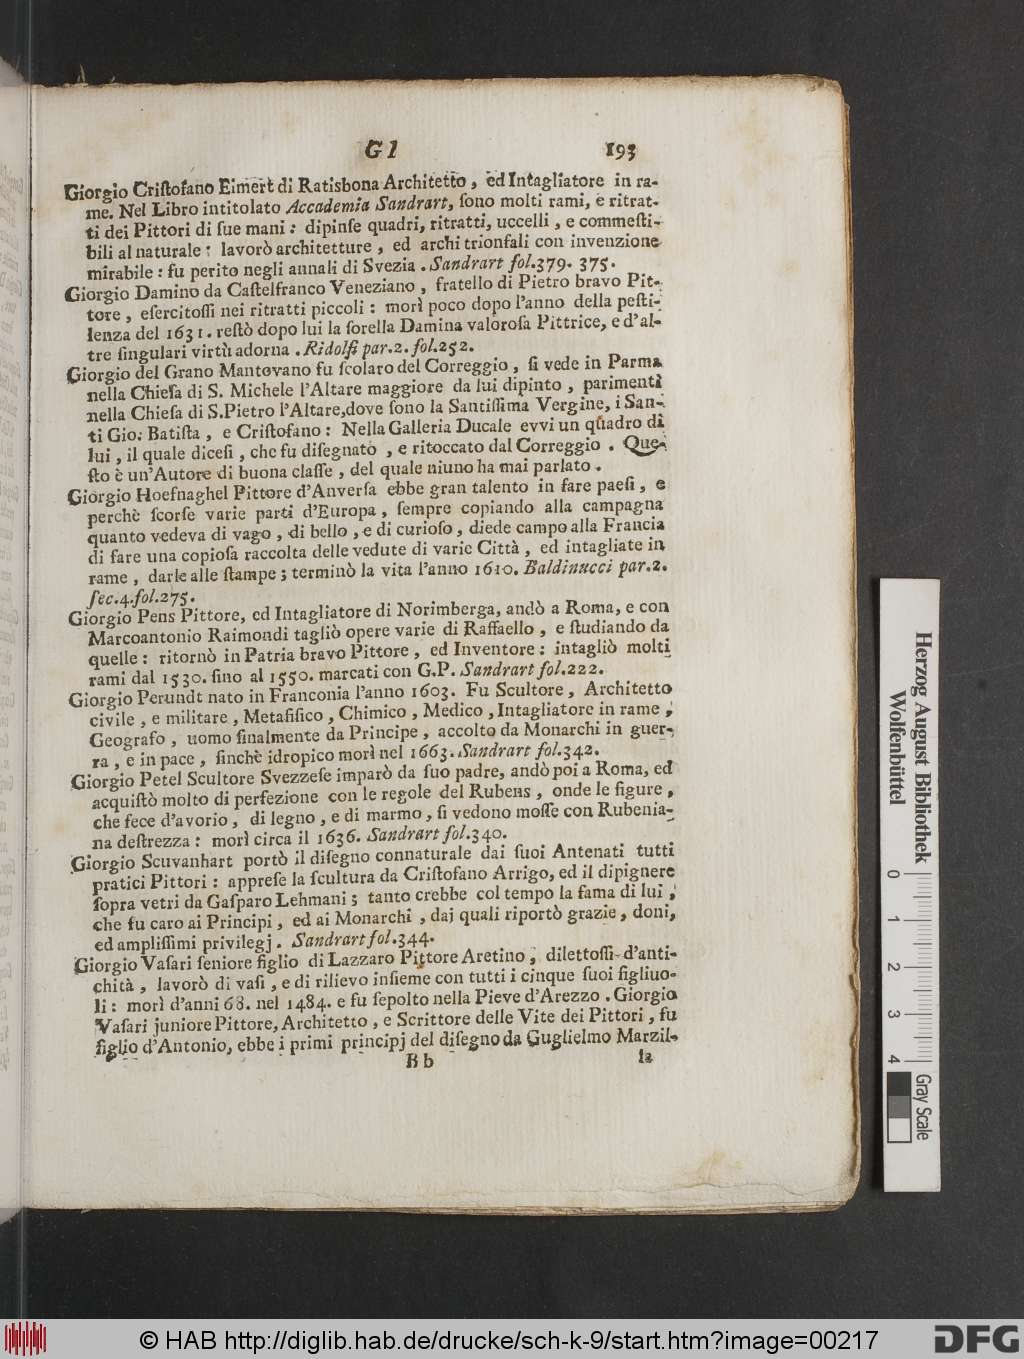 GI 193
Giorgio Criſtofano Eimert di Ratisbona Architetto, ed Intagliatore in ra-
me. Nel Libro intitolato Accademia Sandrart, ſono molti rami, e ritrat-
ti dei Pittori di ſue mani: dipinſe quadri, ritratti, uccelli, e commeſti-
bili al naturale: lavorò architetture, ed archi trionfali con invenzione
mirabile: fu perito negli annali di Svezia. Sandrart fol.379. 375.
Giorgio Damino da Caſtelfranco Veneziano, fratello di Pietro bravo Pit-
tore, eſercitoſſi nei ritratti piccoli: morì poco dopo l'anno della peſti-
lenza del 1631. reſtò dopo lui la ſorella Damina valoroſa Pittrice, e d'al-
tre ſingulari virtù adorna. Ridolfi par.2. fol.252.
Giorgio del Grano Mantovano fu ſcolaro del Correggio, ſi vede in Parma
nella Chieſa di S. Michele l'Altare maggiore da lui dipinto, parimenti
nella Chieſa di S.Pietro l'Altare,dove ſono la Santiſſima Vergine, i San-
ti Gio: Batiſta, e Criſtofano: Nella Galleria Ducale evvi un quadro di
lui, il quale diceſi, che fu diſegnato, e ritoccato dal Correggio. Que-
ſto è un'Autore di buona claſſe, del quale niuno ha mai parlato.
Giorgio Hoefnaghel Pittore d'Anverſa ebbe gran talento in fare paeſi, e
perchè ſcorſe varie parti d'Europa, ſempre copiando alla campagna
quanto vedeva di vago, di bello, e di curioſo, diede campo alla Francia
di fare una copioſa raccolta delle vedute di varie Città, ed intagliate in
rame, darle alle ſtampe; terminò la vita l'anno 1610. Baldinucci par.2.
ſec.4.fol.275.
Giorgio Pens Pittore, ed Intagliatore di Norimberga, andò a Roma, e con
Marcoantonio Raimondi tagliò opere varie di Raffaello, e ſtudiando da
quelle: ritornò in Patria bravo Pittore, ed Inventore: intagliò molti
rami dal 1530. ſino al 1550. marcati con G.P. Sandrart fol.222.
Giorgio Perundt nato in Franconia l'anno 1603. Fu Scultore, Architetto
civile, e militare, Metafiſico, Chimico, Medico, Intagliatore in rame,
Geografo, uomo finalmente da Principe, accolto da Monarchi in guer-
ra, e in pace, finchè idropico morì nel 1663. Sandrart fol.342.
Giorgio Petel Scultore Svezzeſe imparò da ſuo padre, andò poi a Roma, ed
acquiſtò molto di perfezione con le regole del Rubens, onde le figure,
che fece d'avorio, di legno, e di marmo, ſi vedono moſſe con Rubenia-
na deſtrezza: morì circa il 1636. Sandrart fol.340.
Giorgio Scuvanhart portò il diſegno connaturale dai ſuoi Antenati tutti
pratici Pittori: appreſe la ſcultura da Criſtofano Arrigo, ed il dipignere
ſopra vetri da Gaſparo Lehmani; tanto crebbe col tempo la fama di lui,
che fu caro ai Principi, ed ai Monarchi, daj quali riportò grazie, doni,
ed ampliſſimi privilegj. Sandrart fol.344.
Giorgio Vaſari ſeniore figlio di Lazzaro Pittore Aretino, dilettoſſi d'anti-
chità, lavorò di vaſi, e di rilievo inſieme con tutti i cinque ſuoi figliuo-
li: morì d'anni 68. nel 1484. e fu ſepolto nella Pieve d'Arezzo. Giorgio
Vaſari juniore Pittore, Architetto, e Scrittore delle Vite dei Pittori, fu
figlio d'Antonio, ebbe i primi principj del diſegno da Guglielmo Marzil-
B b la
Herzog August Bibliothek
Wolfenbüttel
0 1 2 3 4
Gray Scale
© HAB http://diglib.hab.de/drucke/sch-k-9/start.htm?image=00217
DFG